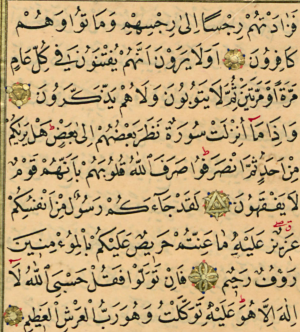 فَزَادَتْهُمْ رِجْسًا اِلٰى رِجْسِهِمْ وَمَاتُوا وَهُمْ
كَافِرُونَ اَوَلَا يَرَوْنَ اَنَّهُمْ يُفْتَنُونَ فِى كُلِّ عَامٍ
مَرَّةً اَوْ مَرَّتَيْنِ ثُمَّ لَا يَتُوبُونَ وَلَا هُمْ يَذَّكَّرُونَ
وَاِذَا مَٓا اُنْزِلَتْ سُورَةٌ نَظَرَ بَعْضُهُمْ اِلٰى بَعْضٍ هَلْ يَرٰيكُمْ
مِنْ اَحَدٍ ثُمَّ انْصَرَفُوا صَرَفَ اللّٰهُ قُلُوبَهُمْ بِاَنَّهُمْ قَوْمٌ
لَا يَفْقَهُونَ لَقَدْ جَٓاءَكُمْ رَسُولٌ مِنْ اَنْفُسِكُمْ
عَزِيزٌ عَلَيْهِ مَا عَنِتُّمْ حَرِيصٌ عَلَيْكُمْ بِالْمُؤْمِنِينَ
رَؤُفٌ رَحِيمٌ فَاِنْ تَوَلَّوْا فَقُلْ حَسْبِىَ اللّٰهُ لَٓا
اِلٰهَ اِلَّا هُوَ عَلَيْهِ تَوَكَّلْتُ وَهُوَ رَبُّ الْعَرْشِ الْعَظِيمِ